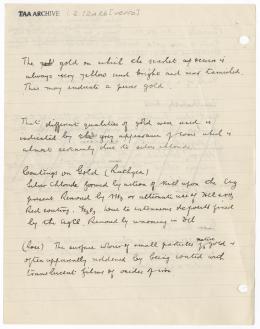 TAA ARCHIVE
The gold on which the scarlet appears is
always very yellow and bright and not tarnished.
This may indicate a purer gold.
That different qualities of gold were used is
indicated by the grey appearance of some which is
almost certainly due to silver chloride.
Coatings on Gold (Rathgen)
Silver chloride formed by action of NaCl upon the Ag
present Removed by NH3 or alternate use of
Red coating. Fe2O3 Iron deposits fixed
by the AgCl Removed by warming in HCl
(Rose) The surface colour of small particles of native gold is
often apparently reddened by being coated with
translucent films of oxides of iron